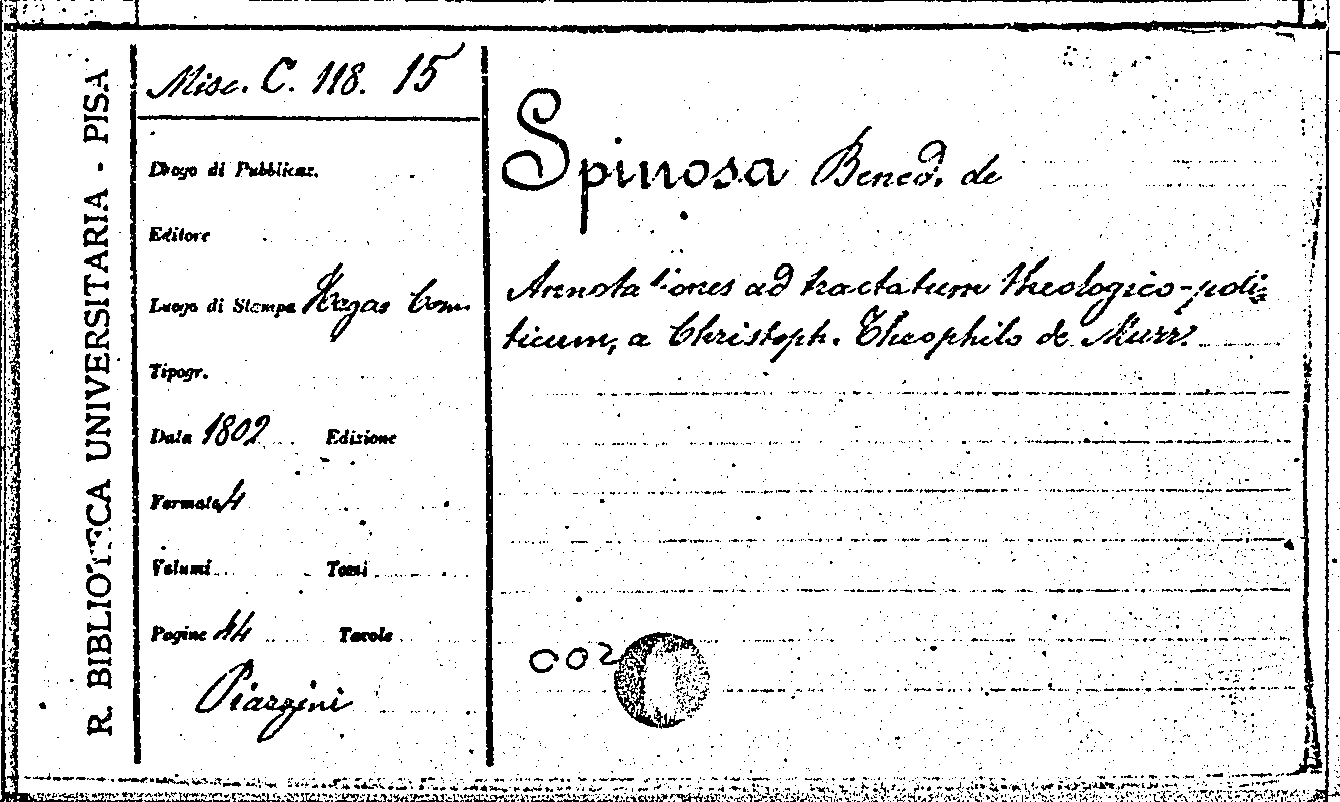 R. BIBLIOTECA UNIVERSITARIA - PISA
Misc. C. 118. 15
Luogo di Pubblicaz.
Editore
Luogo di Stampa Hagas Com.
Tipogr.
Data 1802 Edizione
Formato 4
Volumi Tomi
Pagine 44 Tavole
Piazzini
Spinosa Bened. de
Annotationes ad tractatum theologico-poli
ticum, a Christoph. Theophilo de Murr.
002